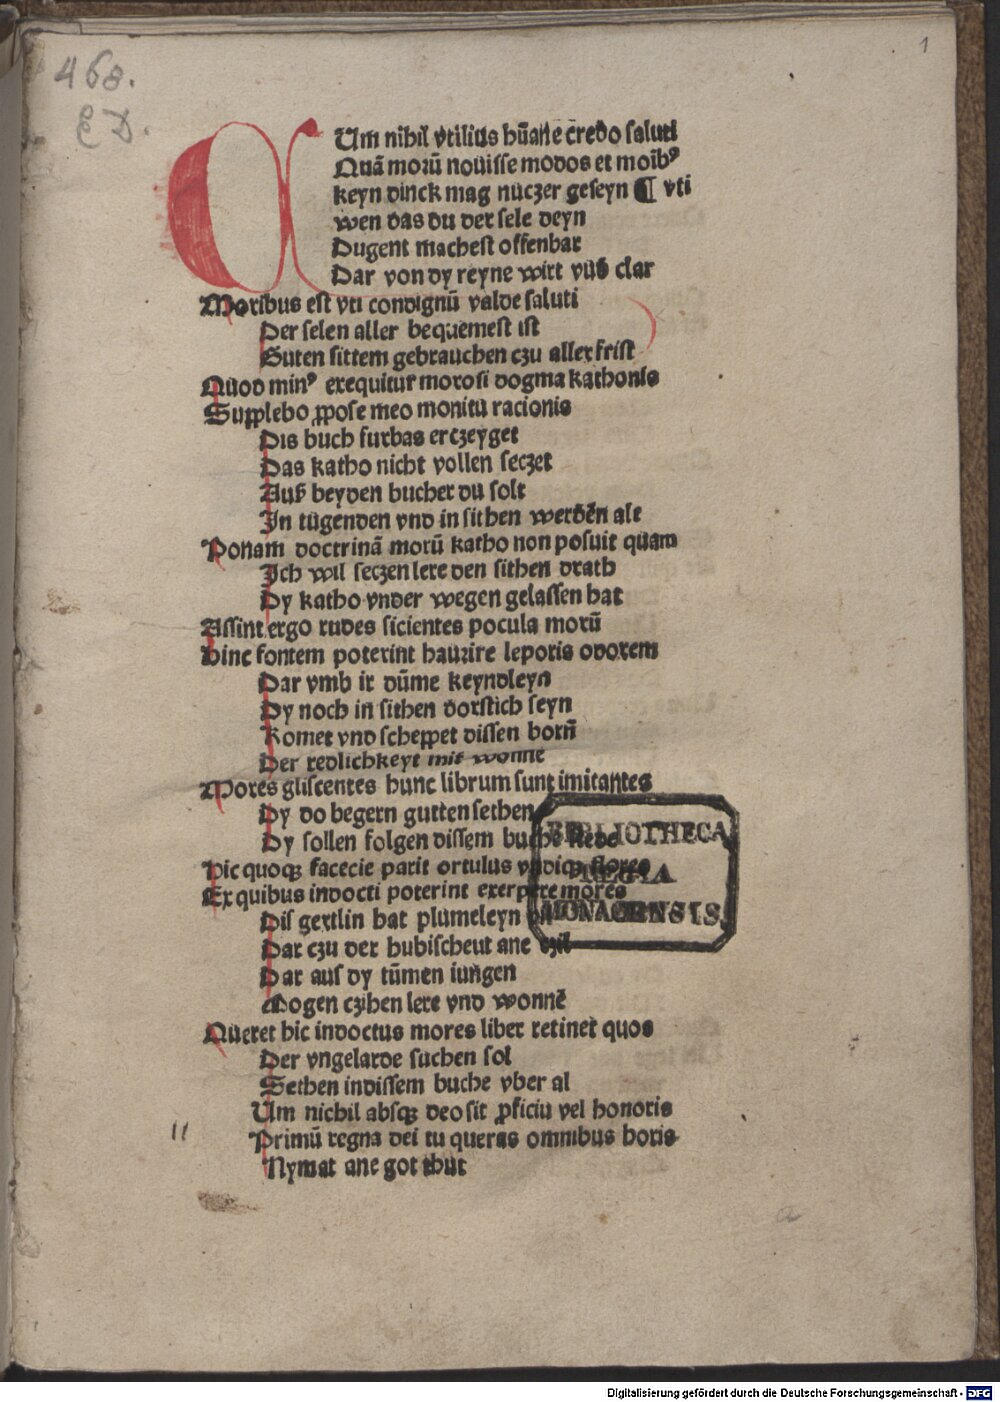 1
468.
E D.
CUm nihil vtilius hūane credo saluti
Quā morū nouisse modos et moībꝰ
keyn dinck mag nuczer geseyn ¶ vti
wen das du der sele deyn
Dugent machest offenbar
Dar von dy reyne wirt vnß clar
Moribus est vti condignū valde saluti
Der selen aller bequemest ist
Guten sittem gebrauchen czu aller frist
Quod minꝰ exequitur morosi dogma kathonis
Supplebo ꝓpose meo monitu racionis
Dis buch furbas erczeyget
Das katho nicht vollen seczet
Auß beyden bucher du solt
In tugenden vnd in sithen werdēn alt
Ponam doctrinā morū katho non posuit quam
Ich wil seczen lere den sithen drath
Dy katho vnder wegen gelassen hat
Assint ergo rudes sicientes pocula morū
hinc fontem poterint haurire leporis odorem
Dar vmb ir dūme keyndleyn
Dy noch in sithen dorstich seyn
Komet vnd scheppet dissen born̄
Der redlichkeyt mit wonne
Mores gliscentes hunc librum sunt imitantes
Dy do begern gutten sethen
Dy sollen folgen dissem buche
hic quoqꝫ facecie parit ortulus vndiqꝫ flores
Ex quibus indocti poterint exerpere mores
Dis gertlin hat plumeleyn
Dar czu der hubischeut ane czil
Dar aus dy tūmen iungen
Mogen czihen lere vnd wonnē
Queret hic indoctus mores liber retinet quos
Der vngelarde suchen sol
Sethen indissem buche vber al
Um nichil absqꝫ deo sit ꝓficiu vel honoris
Primū regna dei tu queras omnibus horis
Nymat ane got thut
BIBLIOTHECA
REGIA
MONACENSIS.
Digitalisierung gefördert durch die Deutsche Forschungsgemeinschaft - DFG